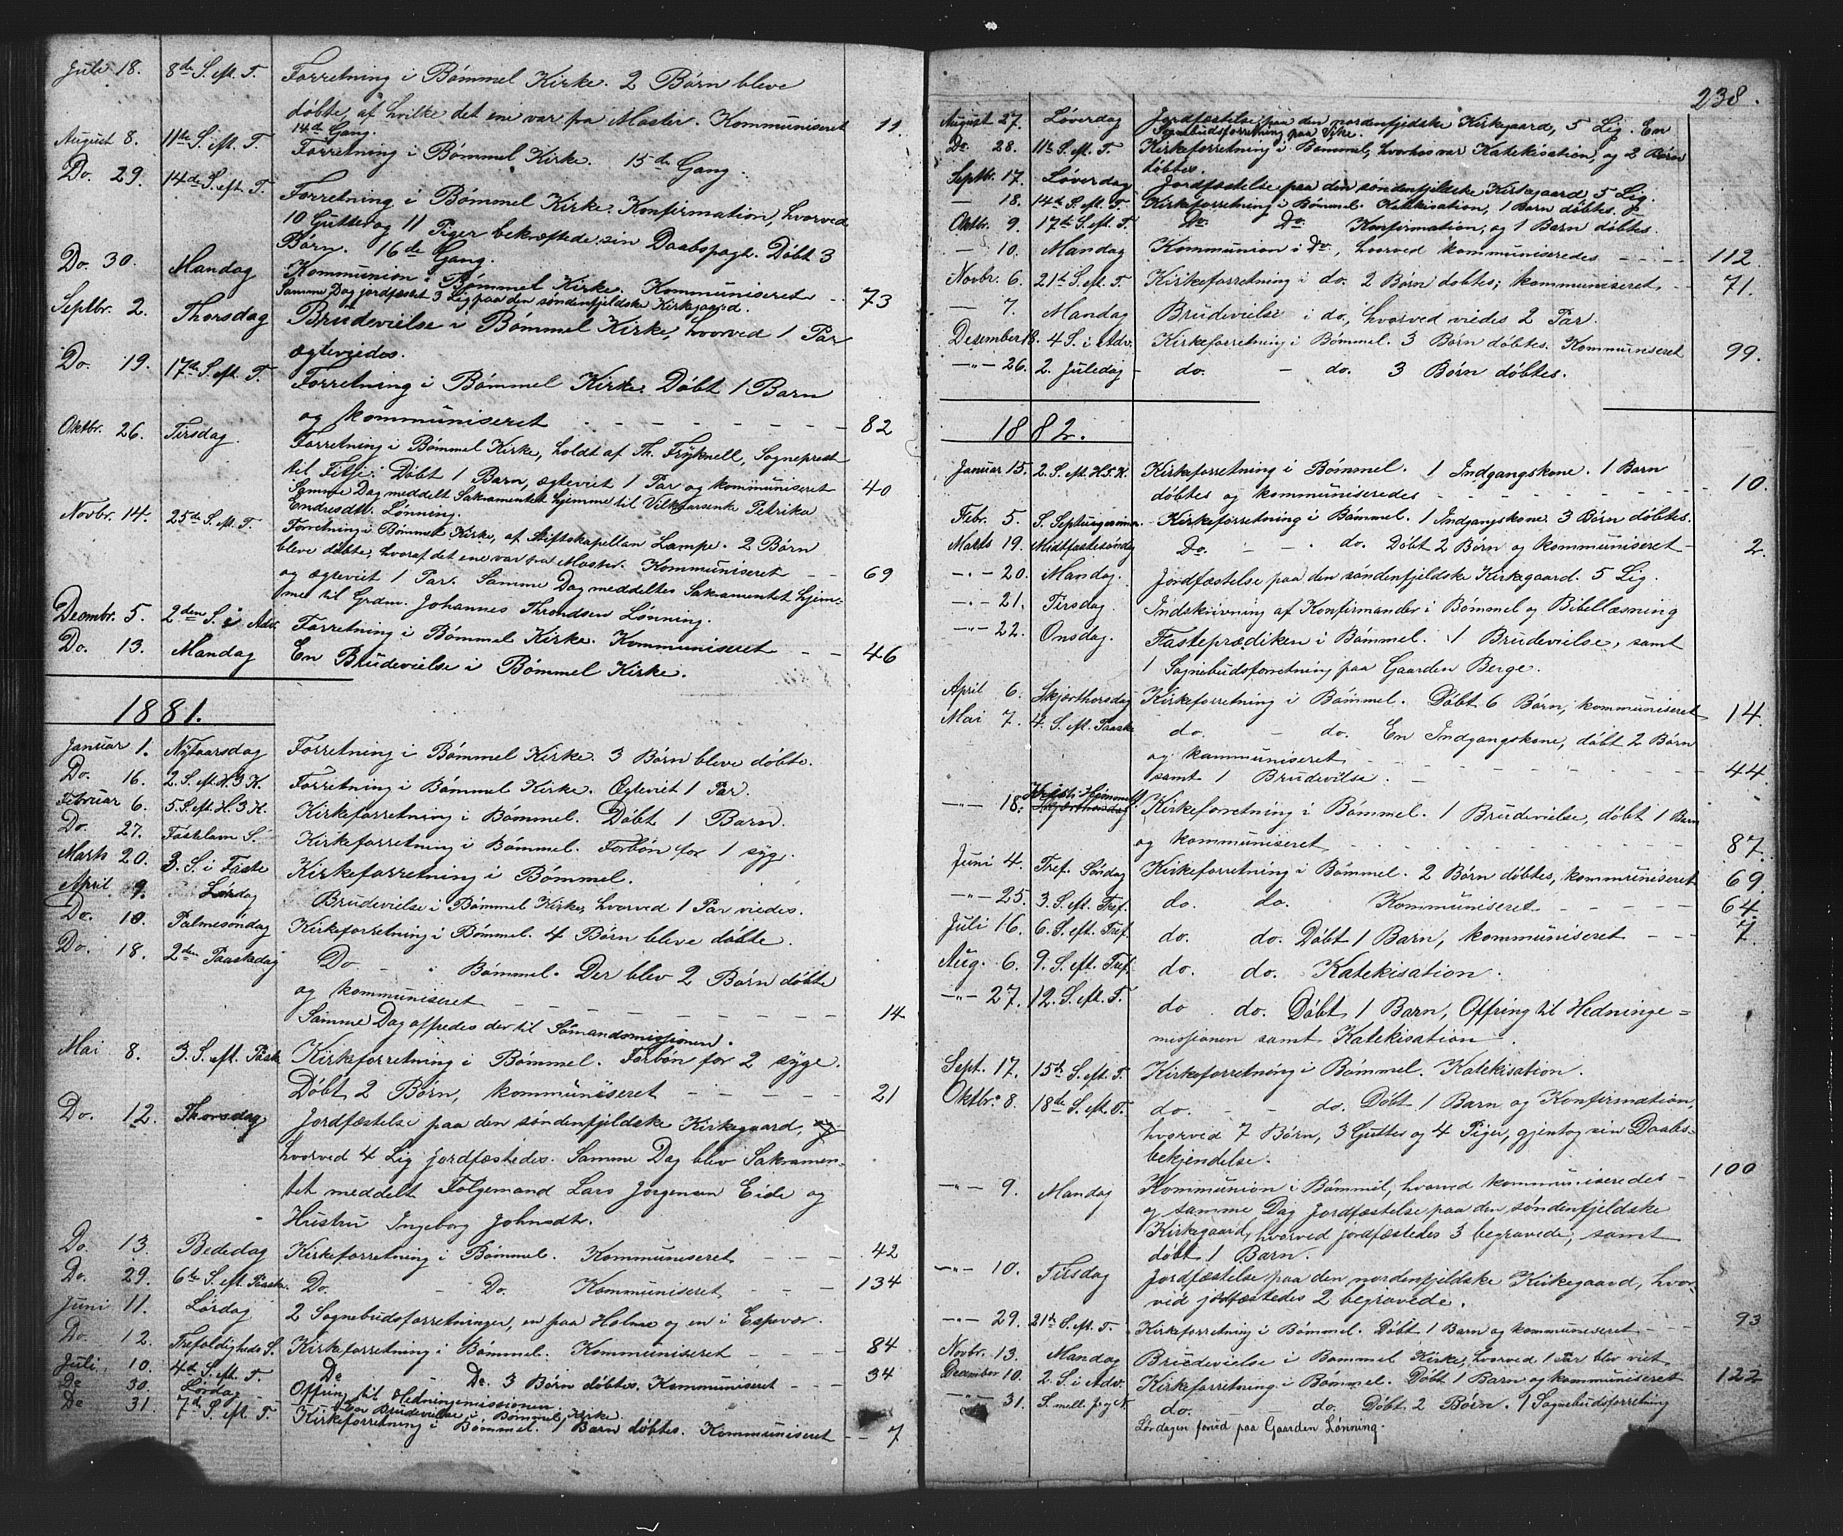 Juli 18. 8de S. eft. T. Forretning i Bömmel Kirke. 2 Börn bleve
döbte, af hvilke det ene var fra Moster. Kommuniseret 11.
14de Gang.
August 8. 11te S. eft. T. Forretning i Bömmel Kirke. 15de Gang.
Do. 29. 14de S. eft. T. Forretning i Bömmel Kirke. Konfirmation, hvorved
10 Gutter og 11 Piger bekræftede sin Daabspagt. Döbt 3
Börn. 16de Gang.
Do. 30. Mandag Kommunion i Bömmel Kirke. Kommuniseret - - 73
Samme Dag jordfæstet 3 Lig paa den söndenfjeldske Kirkegaard.
Septbr. 2. Thorsdag Brudevielse i Bömmel Kirke, hvorved 1 Par
ægteviedes.
Do. 19. 17de S. eft. T. Forretning i Bömmel Kirke. Döbt 1 Barn
og kommuniseret - - - - - - - 82
Oktbr. 26. Tirsdag. Forretning i Bömmel Kirke, holdt af Th. Fryknell, Sogneprest
til Fitje. Döbt 1 Barn, ægteviet 1 Par og kommuniseret 40
Samme Dag meddelt Sakramentet hjemme til Petrika
Endresdtt. Lönning.
Novbr. 14. 25de S. eft. T. Forretning i Bömmel Kirke, af Stiftskapellan Lampe. 2 Börn
bleve döbte, hvoraf det ene var fra Moster. Kommuniseret - - 69
og ægteviet 1 Par. Samme Dag meddeltes Sakramentet hjem-
me til Grdm. Johannes Throndsen Lönning.
Decmbr. 5. 2den S. i Adv. Forretning i Bömmel Kirke. Kommuniseret - - 46
Do. 13. Mandag En Brudevielse i Bömmel Kirke.
1881.
Januar 1. Nytaarsdag Forretning i Bömmel Kirke. 3 Börn bleve döbte.
Do. 16. 2. S. eft. H. 3 K. Forretning i Bömmel Kirke. Ægteviet 1 Par.
Februar 6. 5. S. eft. H. 3 K. Kirkeforretning i Bömmel. Döbt 1 Barn.
Do. 27. Fastelavn S. Kirkeforretning i Bömmel. Forbön for 1 syg.
Marts 20. 3. S. i Faste Kirkeforretning i Bömmel.
April 9. Lördag Brudevielse i Bömmel Kirke, hvorved 1 Par viedes.
Do. 10. Palmesöndag Kirkeforretning i Bömmel. 4 Börn bleve döbte.
Do. 18. 2den Paaskedag Do - i Bömmel. Der blev 2 Börn döbte
og kommuniseret - - - - - - - - 14
Samme Dag ofredes der til Sömandsmissjonen.
Mai 8. 3. S. eft. Paask Kirkeforretning i Bömmel. Forbön for 2 syge.
Döbt 2 Börn, kommuniseret - - - - - 21
Do. 12. Thorsdag Jordfæstelse paa den söndenfjeldske Kirkegaard,
hvorved 4 Lig jordfæstedes. Samme Dag blev Sakramen-
tet meddelt Folgemand Lars Jörgensen Eide og
Hustru Ingeborg Johnsdt.
Do. 13. Bededag Kirkeforretning i Bömmel. Kommuniseret - - - 42
Do. 29. 6te S. eft. Paaske. Do. - Do. Kommuniseret - - - 134
Juni 11. Lördag 2 Sognebudsforretninger, en paa Holme og en i Espevær.
Do. 12. Trefoldigheds S. Kirkeforretning i Bömmel. Kommuniseret - - - - 84
Juli 10. 4de S. eft. T. Do Do. 3 Börn döbtes. Kommuniseret - - - 34
Offring til Hedningemissionen.
Do 30. Lördag En Brudevielse i Bömmel Kirke.
Do 31. 7de S. eft. T. Kirkeforretning i Bömmel. 1 Barn döbtes. Kommuniseret - - 7
238.
August 27. Löverdag Jordfæstelse paa den nordenfjeldske Kirkegaard, 5 Lig. En
Sognebudsforretning paa Vike.
Do. 28. 11te S. eft. T. Kirkeforretning i Bömmel, hvorhos var Katekisation, og 2 Börn
döbtes.
Septbr. 17. Löverdag Jordfæstelse paa den söndenfjeldske Kirkegaard, 5 Lig.
- 18. 14de S. eft. T. Kirkeforretning i Bömmel. Katekisation, 1 Barn döbtes.
Oktbr. 9. 17de S. eft. T. Do. Do. Konfirmation, og 1 Barn döbtes.
- 10. Mandag Kommunion i Do., hvorved kommuniseredes - - - - 112
Novbr. 6. 21de S. eft. T. Kirkeforretning i do. 2 Börn döbtes; kommuniseret - - 71.
- 7. Mandag Brudevielse i do, hvorved viedes 2 Par.
Desember 18. 4 S. i Adv. Kirkeforretning i Bömmel. 3 Börn döbtes. Kommuniseret 99.
-"- 26. 2. Juledag - do. - do. 3 Börn döbtes.
1882.
Januar 15. 2. S. eft. H. 3. K. Kirkeforretning i Bömmel. 1 Indgangskone. 1 Barn
döbtes og kommuniseredes - - - - - - - - 10.
Febr. 5. S. Septuagesima. Kirkeforretning i Bömmel. 1 Indgangskone. 3 Börn döbtes.
Marts 19. Midtfastesöndag Do. - - do. Döbt 2 Börn og kommuniseret - 2.
-"- 20. Mandag. Jordfæstelse paa den söndenfjeldske Kirkegaard. 5 Lig.
-"- 21. Tirsdag. Indskrivning af Konfirmander i Bömmel og Bibellæsning
-"- 22. Onsdag. Fasteprædiken i Bömmel. 1 Brudevielse, samt
1 Sognebudsforretning paa Gaarden Berge.
April 6. Skjærthorsdag Kirkeforretning i Bömmel. Döbt 6 Börn, kommuniseret 14.
Mai 7. 4. S. eft. Paaske do. - do. En Indgangskone, döbt 2 Börn
og kommuniseret - - - - - - - 44
samt 1 Brudevilse.
-"- 18. Kristi Himmelf. Kirkeforretning i Bömmel. 1 Brudevielse, döbt 1 Barn
og kommuniseret - - - - - - - 87.
Juni 4. Tref. Söndag Kirkeforretning i Bömmel. 2 Börn döbtes, kommuniseret 69.
-"- 25. 3. S. eft. Tref. do. do. Kommuniseret - - - - - 64.
Juli 16. 6. S. eft. Tref. do. do. Döbt 1 Barn, kommuniseret - - - 7.
Aug. 6. 9. S. eft. Tref. do. do. Katekisation.
-"- 27. 12. S. eft. T. do. do. Döbt 1 Barn, Offring til Hedninge=
missjonen samt Katekisation.
Sept. 17. 15de S. eft. T. Kirkeforretning i Bommel. Katekisation.
Oktbr. 8. 18de S. eft. T. do. - - do. Döbt 1 Barn og Konfirmation,
hvorved 7 Börn, 3 Guttes og 4 Piger, gjentog sin Daabs-
bekjendelse.
-"- 9. Mandag Kommunion i Bömmel, hvorved kommuniseredes - 100
og samme Dag Jordfæstelse paa den söndenfjeldske
Kirkegaard, hvorved jordfæstedes 3 begravede, samt
döbt 1 Barn.
-"- 10. Tirsdag Jordfæstelse paa den nordenfjeldske Kirkegaard, hvor-
ved jordfæstedes 2 begravede.
-"- 29. 21de S. eft. T. Kirkeforretning i Bömmel. Döbt 1 Barn og kommuniseret - - 93
Novbr. 13. Mandag Brudevielse i Bommel Kirke, hvorved 1 Par blev viet.
December 10. 2. S. i Adv. Kirkeforretning i Bömmel. Döbt 1 Barn og kommuniseret 122
-"- 31. S. mell. J og N. do. - do. Döbt 2 Börn. 1 Sognebudsforretning
Lördagen forud paa Gaarden Lönning.